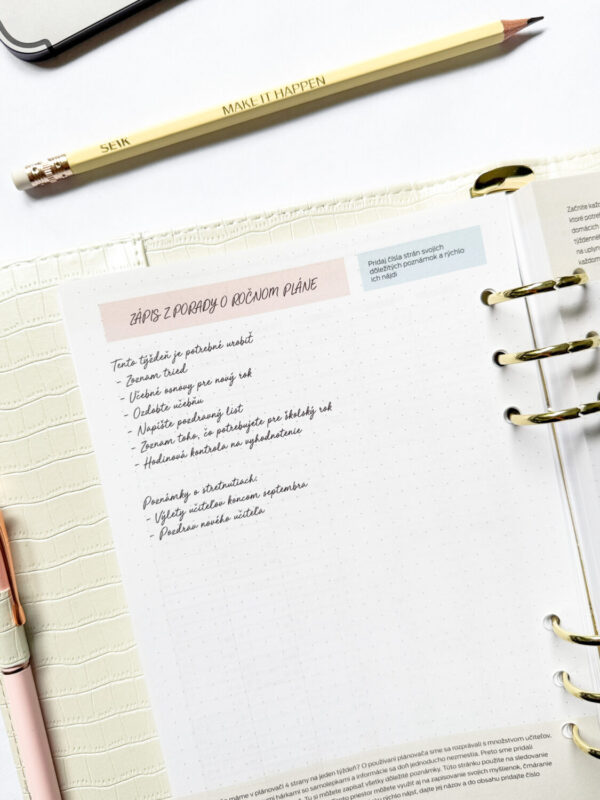 MAKE IT HAPPEN
SEIK
ZÁPIS Z PORADY O ROČNOM PLÁNE
Pridaj čísla strán svojich
dôležitých poznámok a rýchlo
ich nájdi
Tento týždeň je potrebné urobiť
- Zoznam tried
- Učebné osnovy pre nový rok
- Ozdobte učebňu
- Napíšte pozdravný list
- Zoznam toho, čo potrebujete pre školský rok
- Hodinová kontrola na vyhodnotenie
Poznámky o stretnutiach:
- Výlety učiteľov koncom septembra
- Pozdrav nového učiteľa
Začnite
ktoré
domácich
na
máme v plánovači 4 strany na jeden týždeň? O používaní plánovača sme sa rozprávali s množstvom učiteľov.
hárkami so samolepkami a informácie sa doň jednoducho nezmestia. Preto sme pridali
Tu si môžete zapísať všetky dôležité poznámky. Túto stránku použite na sledovanie
priestor môžete využiť aj na zapisovanie svojich myšlienok, čmáranie
rýchlo nájsť, dajte jej názov a do obsahu pridajte číslo